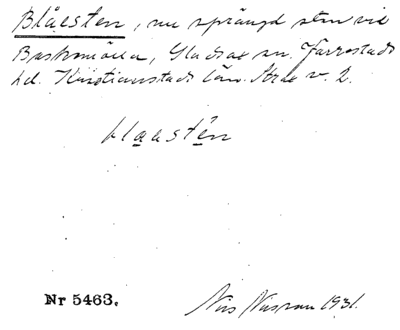 Blåesten, nu sprängd sten vid
Baskemölla, Gladsax sn. Järrestads
hd. Kristianstads län.
blaasten
Nr 5463.
Nils 1931.